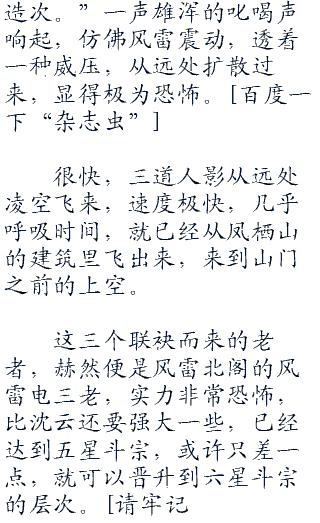 造次。”一声雄浑的叱喝声
响起，仿佛风雷震动，透着
一种威压，从远处扩散过
来，显得极为恐怖。[百度一
下“杂志虫”]
很快，三道人影从远处
凌空飞来，速度极快，几乎
呼吸时间，就已经从凤栖山
的建筑里飞出来，来到山门
之前的上空。
这三个联袂而来的老
者，赫然便是风雷北阁的风
雷电三老，实力非常恐怖，
比沈云还要强大一些，已经
达到五星斗宗，或许只差一
点，就可以晋升到六星斗宗
的层次。[请牢记